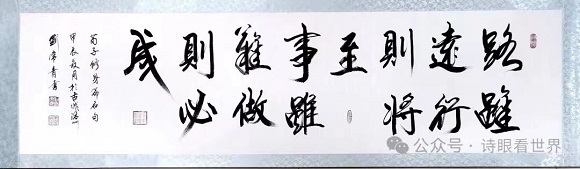 路雖
遠行
則將
至
事雖
難做
則必
成
荀子修身篇名句
甲辰夏月於古
劉常青書
公众号·诗眼看世界